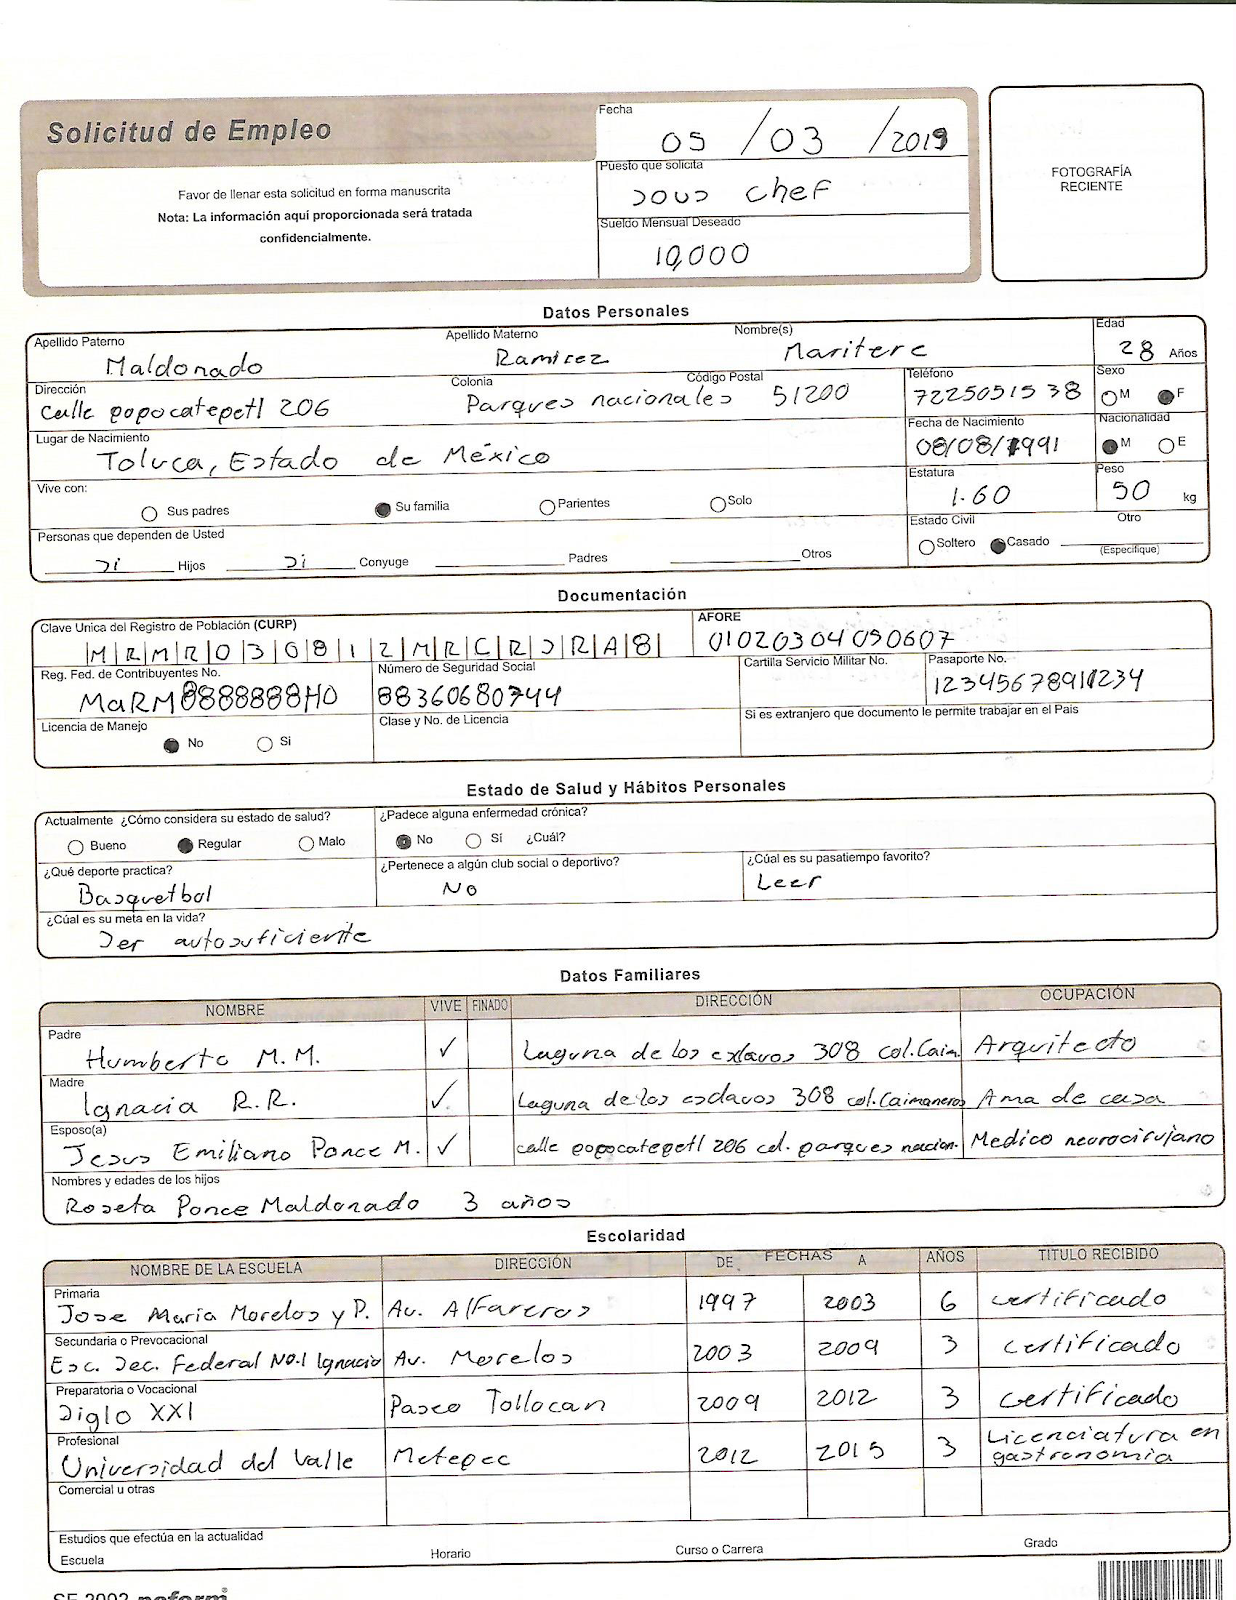 Solicitud de Empleo
Favor de llenar esta solicitud en forma manuscrita
Nota: La información aquí proporcionada será tratada
confidencialmente.
Fecha
05 /03 /2019
Puesto que solicita
sous chef
Sueldo Mensual Deseado
10,000
FOTOGRAFÍA
RECIENTE
Datos Personales
Apellido Paterno Apellido Materno Nombre(s) Edad
Maldonado Ramirez Maritere 28 Años
Dirección Colonia Código Postal Teléfono Sexo
Calle popocatepetl 206 Parques nacionales 51200 7225051538 M F
Lugar de Nacimiento Fecha de Nacimiento Nacionalidad
Toluca, Estado de México 08/08/1991 M E
Vive con: Estatura Peso
Sus padres Su familia Parientes Solo 1.60 50 kg
Personas que dependen de Usted Estado Civil Otro
si Hijos si Conyuge Padres Otros Soltero Casado (Especifique)
Documentación
Clave Unica del Registro de Población (CURP) AFORE
MRMR030812MRCRSRA8 01020304050607
Reg. Fed. de Contribuyentes No. Número de Seguridad Social Cartilla Servicio Militar No. Pasaporte No.
MaRM8888888H0 88360680744 12345678911234
Licencia de Manejo Clase y No. de Licencia Si es extranjero que documento le permite trabajar en el Pais
No Si
Estado de Salud y Hábitos Personales
Actualmente ¿Cómo considera su estado de salud? ¿Padece alguna enfermedad crónica?
Bueno Regular Malo No Sí ¿Cuál?
¿Qué deporte practica? ¿Pertenece a algún club social o deportivo? ¿Cuál es su pasatiempo favorito?
Basquetbol No Leer
¿Cuál es su meta en la vida?
Ser autosuficiente
Datos Familiares
NOMBRE VIVE FINADO DIRECCIÓN OCUPACIÓN
Padre
Humberto M.M. ✓ Laguna de los esclavos 308 col.Caim. Arquitecto
Madre
Ignacia R.R. ✓ Laguna de los esclavos 308 col.Caimaneros Ama de casa
Esposo(a)
Jesus Emiliano Ponce M. ✓ calle popocatepetl 206 col. parques nacion. Medico neurocirujano
Nombres y edades de los hijos
Roseta Ponce Maldonado 3 años
Escolaridad
NOMBRE DE LA ESCUELA DIRECCIÓN DE FECHAS A AÑOS TITULO RECIBIDO
Primaria
Jose Maria Morelos y P. Av. Alfareros 1997 2003 6 certificado
Secundaria o Prevocacional
Esc. Sec. Federal No.1 Ignacio Av. Morelos 2003 2009 3 certificado
Preparatoria o Vocacional
Siglo XXI Paseo Tollocan 2009 2012 3 certificado
Profesional
Universidad del Valle Metepec 2012 2015 3 Licenciatura en gastronomia
Comercial u otras
Estudios que efectúa en la actualidad
Escuela Horario Curso o Carrera Grado